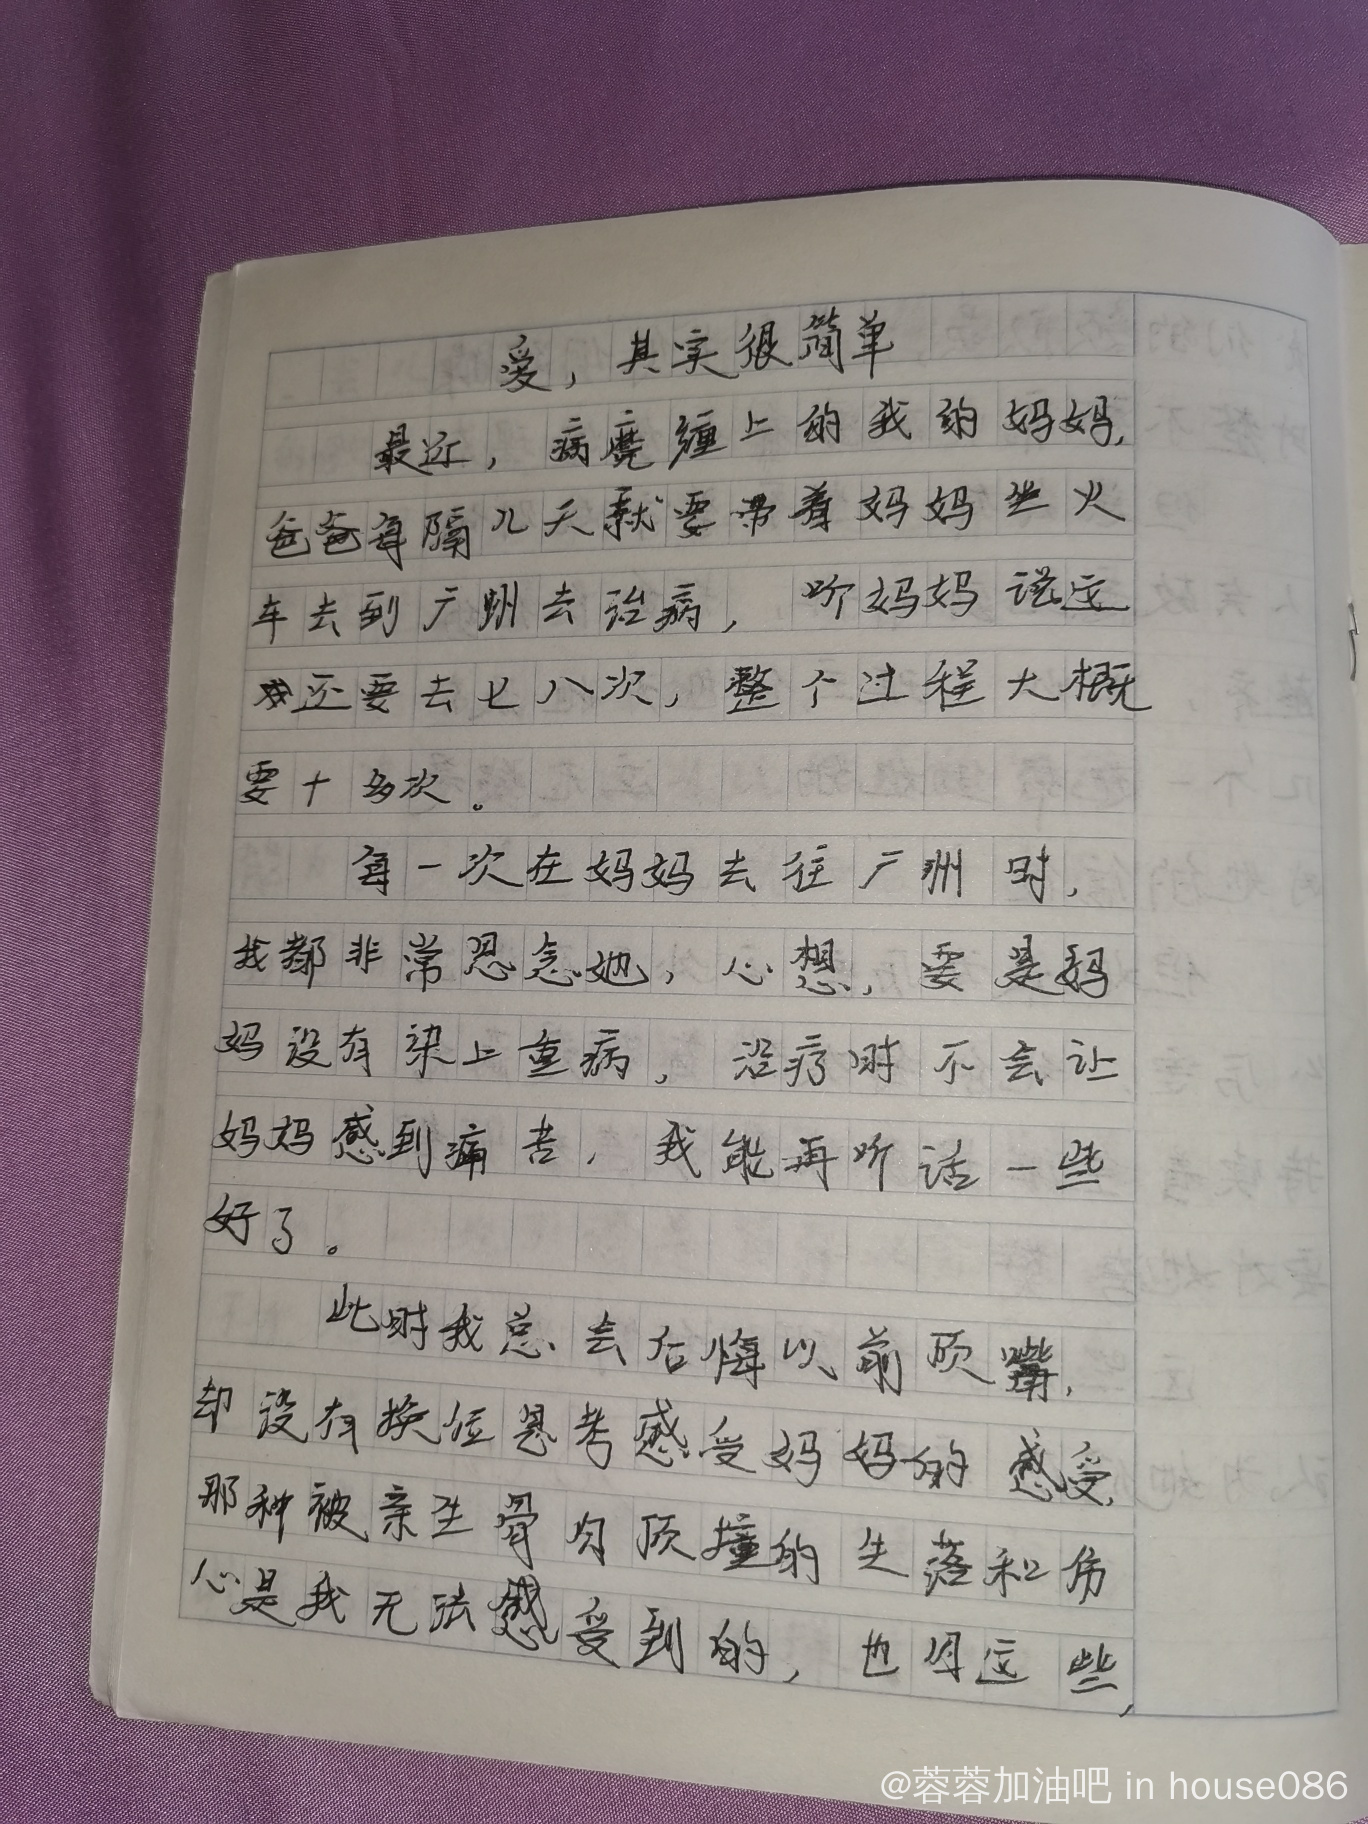 爱，其实很简单
最近，病魔缠上的我的妈妈，
爸爸每隔几天就要带着妈妈坐火
车去到广州去治病，听妈妈说这
还要去七八次，整个过程大概
要十多次。
每一次在妈妈去往广州时，
我都非常思念她，心想，要是妈
妈没有染上重病，治疗时不会让
妈妈感到痛苦，我能再听话一些
好了。
此时我总会后悔以前顶嘴，
却没有换位思考感受妈妈的感受，
那种被亲生骨肉顶撞的失落和伤
心是我无法感受到的，也因这些，
@蓉蓉加油吧 in house086